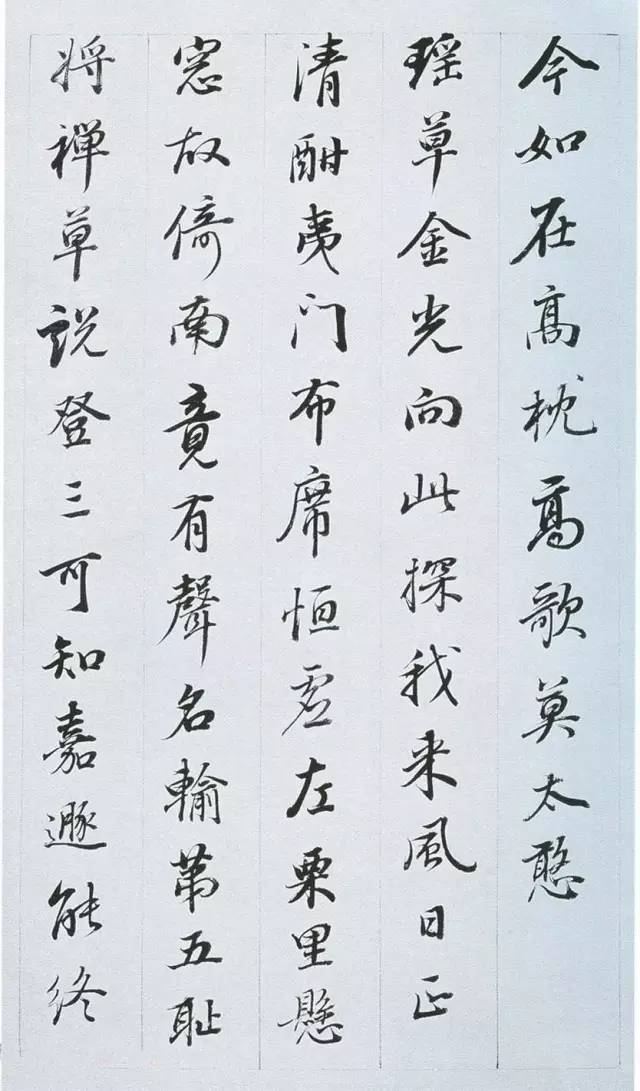 今如在高枕高歌莫太憨
瑶草金光向此探我来風日正
清酣夷门布席恒虚左栗里懸
窓故倚南竟有聲名輸苐五耻
将禅草說登三可知嘉遯能终